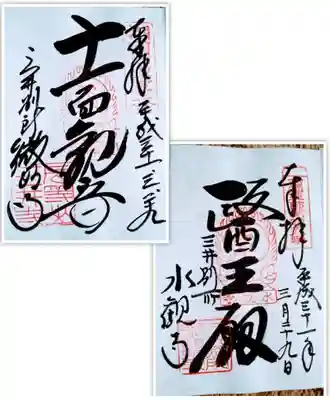 奉拝
平成三十一 三 二九
十一面観音
三井別所
微妙寺
奉拝
平成三十一年
三月二十九日
醫王殿
三井別所
水観寺